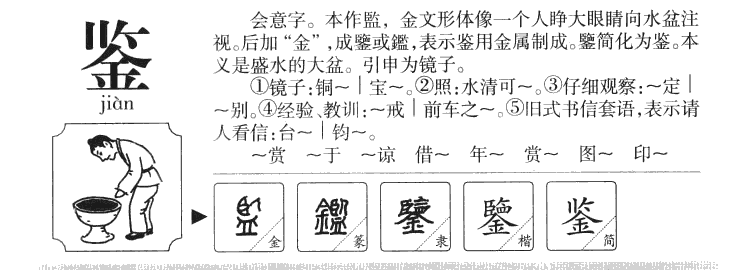 鉴
jiàn
会意字。本作監，金文形体像一个人睁大眼睛向水盆注
视。后加“金”，成鑒或鑑，表示鉴用金属制成。鑒简化为鉴。本
义是盛水的大盆。引申为镜子。
①镜子：铜～｜宝～。②照：水清可～。③仔细观察：～定｜
～别。④经验、教训：～戒｜前车之～。⑤旧式书信套语，表示请
人看信：台～｜钧～。
～赏 ～于 ～谅 借～ 年～ 赏～ 图～ 印～
監 金 鑑 篆 鑒 隶 鑒 楷 鉴 简